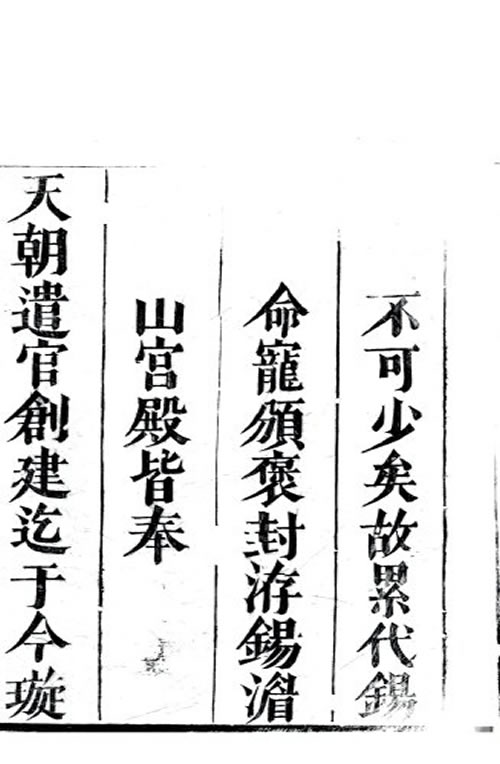 不可少矣故累代錫
命寵頒褒封洊錫湣
山宮殿皆奉
天朝遣官創建迄于今璇